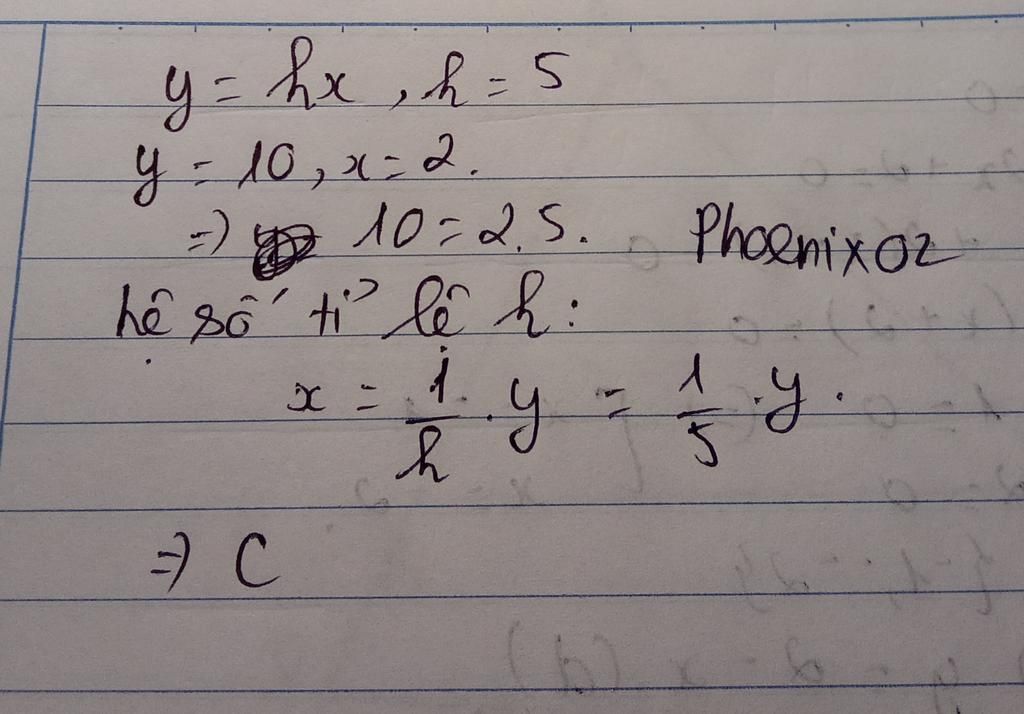 y = hx, h = 5
y = 10, x = 2.
=> 10 = 2.5.
PhoenixO2
hệ số tỉ lệ h:
x = 1/h . y = 1/5 . y .
=> C